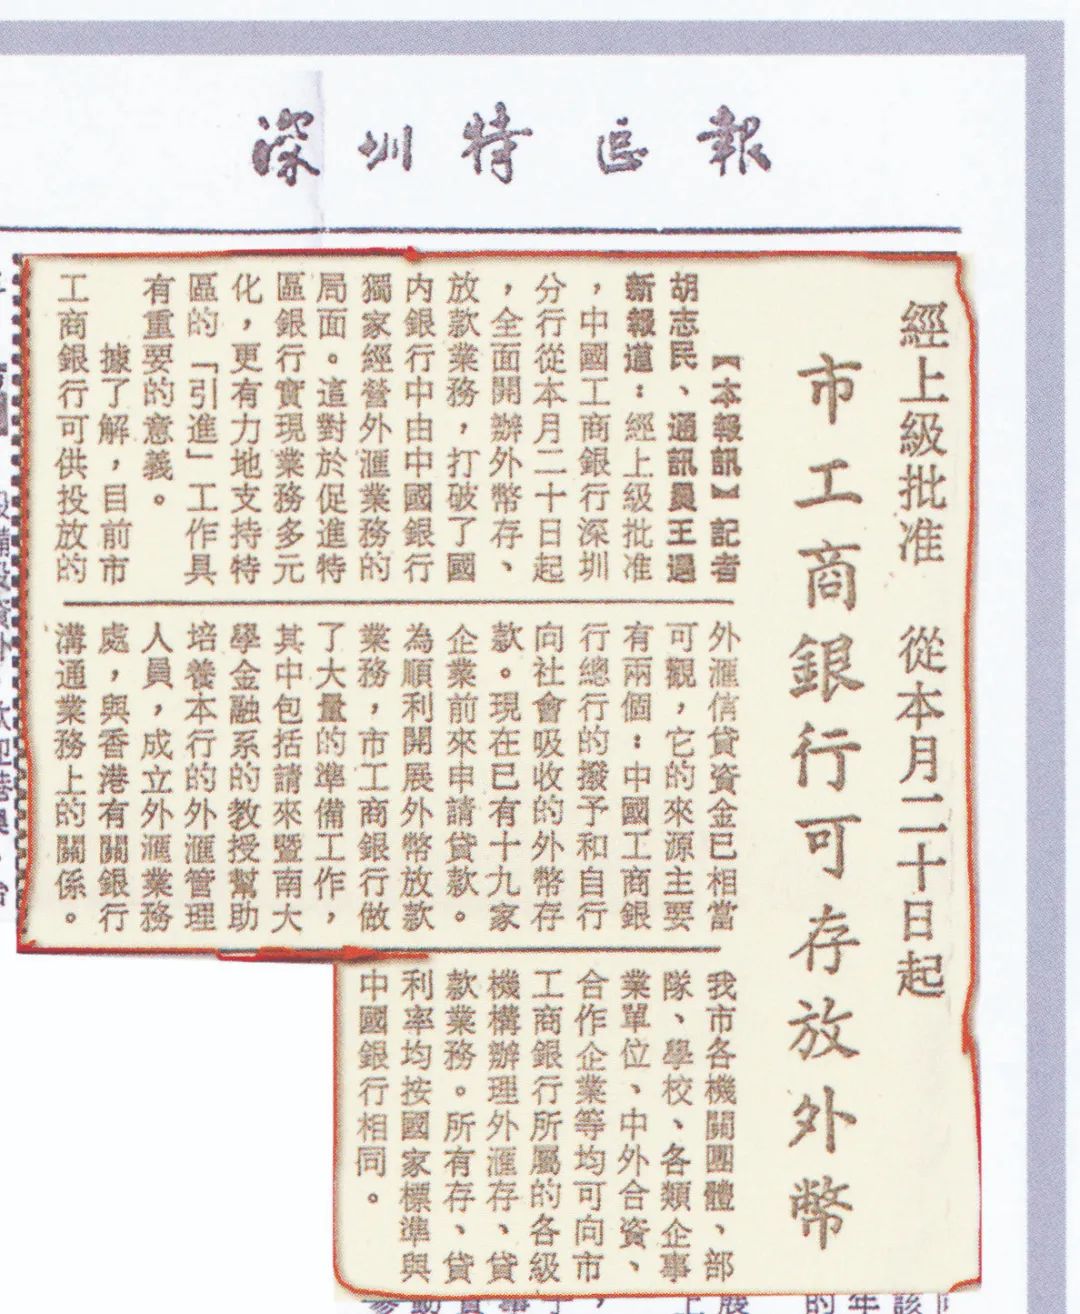 深圳特區報
經上級批准　從本月二十日起
市工商銀行可存放外幣
【本報訊】記者
胡志民、通訊員王遇
新報道：經上級批准
，中國工商銀行深圳
分行從本月二十日起
，全面開辦外幣存、
放款業務，打破了國
内銀行中由中國銀行
獨家經營外滙業務的
局面。這對於促進特
區銀行實現業務多元
化，更有力地支持特
區的「引進」工作具
有重要的意義。
據了解，目前市
工商銀行可供投放的
外滙信貸資金已相當
可觀，它的來源主要
有兩個：中國工商銀
行總行的撥予和自行
向社會吸收的外幣存
款。現在已有十九家
企業前來申請貸款。
為順利開展外幣放款
業務，市工商銀行做
了大量的準備工作，
其中包括請來暨南大
學金融系的教授幫助
培養本行的外滙管理
人員，成立外滙業務
處，與香港有關銀行
溝通業務上的關係。
我市各機關團體、部
隊、學校、各類企事
業單位、中外合資、
合作企業等均可向市
工商銀行所屬的各級
機構辦理外滙存、貸
款業務。所有存、貸
利率均按國家標準與
中國銀行相同。